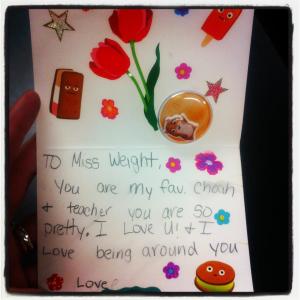 TO Miss Weight,
You are my fav. choah
& teacher you are so
pretty. I Love U! & I
Love being around you
Love